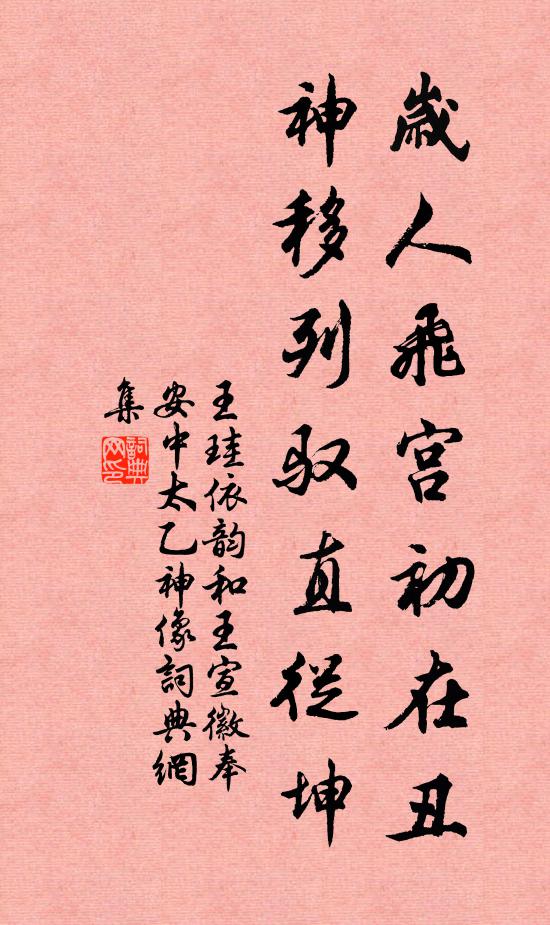 歲人飛宮初在丑
神移列馭直從坤
王珪依韵和王宣徽奉
安中太乙神像詞典網
集
詞典
网印